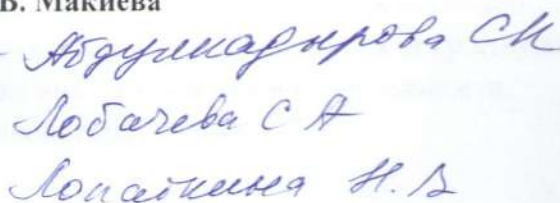 В. Макиева
Абдулкадырова СК
Лобачева С А
Лопаткина Н. В